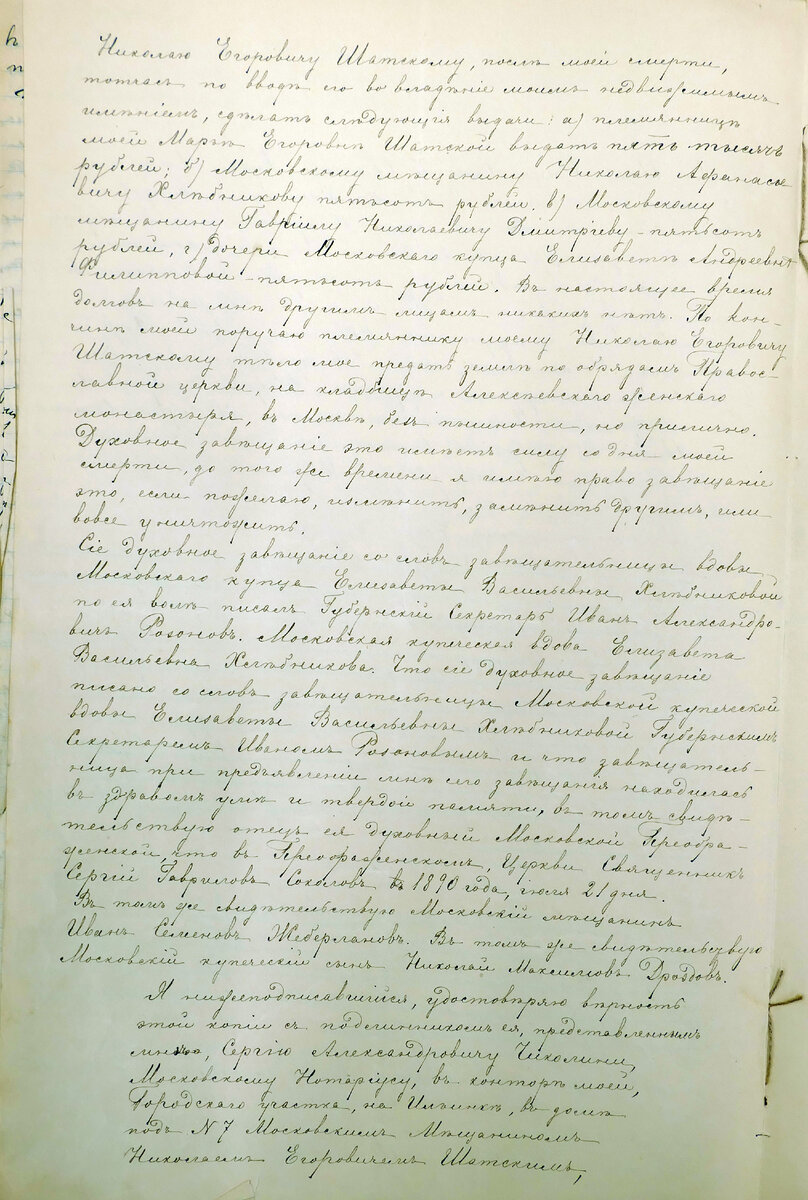 Николаю Егоровичу Шатскому, послѣ моей смерти,
тотчасъ по вводѣ его во владѣніе моимъ недвижимымъ
имѣніемъ, сдѣлать слѣдующія выдачи: а) племянницѣ
моей Марьѣ Егоровнѣ Шатской выдать пять тысячъ
рублей; б) Московскому мѣщанину Николаю Афанасье
вичу Хлѣбникову пятьсотъ рублей. в) Московскому
мѣщанину Гавріилу Николаевичу Дмитріеву - пятьсотъ
рублей, г) дочери Московскаго купца Елизаветѣ Андреевнѣ
Филипповой - пятьсотъ рублей. Въ настоящее время
долговъ на мнѣ другимъ лицамъ никакихъ нѣтъ. По кон-
чинѣ моей поручаю племяннику моему Николаю Егоровичу
Шатскому тѣло мое предать землѣ по обрядамъ Правос-
лавной церкви, на кладбищѣ Алексѣевскаго женскаго
монастыря, въ Москвѣ, безъ пышности, но прилично.
Духовное завѣщаніе это имѣетъ силу со дня моей
смерти, до того же времени я имѣю право завѣщаніе
это, если пожелаю, измѣнить, замѣнить другимъ, или
вовсе уничтожить.
Сіе духовное завѣщаніе со словъ завѣщательницы вдовы
Московскаго купца Елизаветы Васильевны Хлѣбниковой
по ея волѣ писалъ Губернскій Секретарь Иванъ Александро-
вичъ Розоновъ. Московская купеческая вдова Елизавета
Васильевна Хлѣбникова. Что сіе духовное завѣщаніе
писано со словъ завѣщательницы Московской купеческой
вдовы Елисаветы Васильевны Хлѣбниковой Губернскимъ
Секретаремъ Иваномъ Розоновымъ и что завѣщатель-
ница при предъявленіи мнѣ сего завѣщанія находилась
въ здравомъ умѣ и твердой памяти, въ томъ свидѣ-
тельствую отецъ ея духовный Московской Преобра-
женской, что въ Преображенскомъ, Церкви Священникъ
Сергій Гавриловъ Соколовъ въ 1890 года, іюля 21 дня.
Въ томъ же свидѣтельствую Московскій мѣщанинъ
Иванъ Семеновъ Жеберлановъ. Въ томъ же свидѣтельствую
Московскій купеческій сынъ Николай Максимовъ Дроздовъ.
Я нижеподписавшійся, удостовѣряю вѣрность
этой копіи съ подлинникомъ ея, представленнымъ
мнѣ, Сергію Александровичу Чиколини,
Московскому Нотаріусу, въ конторѣ моей,
Городскаго участка, на Ильинкѣ, въ домѣ
подъ N 7 Московскимъ Мѣщаниномъ
Николаемъ Егоровичемъ Шатскимъ,